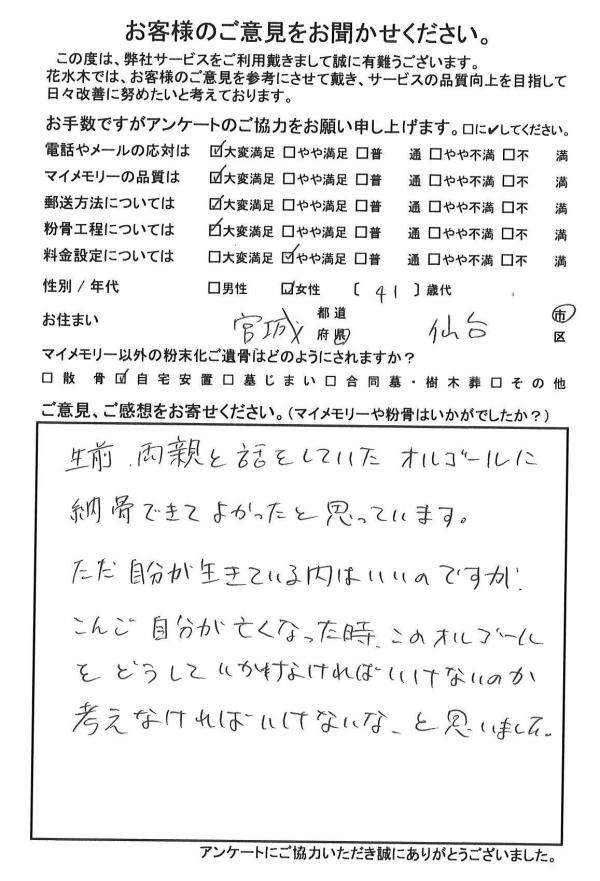 お客様のご意見をお聞かせください。
この度は、弊社サービスをご利用戴きまして誠に有難うございます。
花水木では、お客様のご意見を参考にさせて戴き、サービスの品質向上を目指して
日々改善に努めたいと考えております。
お手数ですがアンケートのご協力をお願い申し上げます。□に✔してください。
電話やメールの応対は ☑大変満足 □やや満足 □普 通 □やや不満 □不 満
マイメモリーの品質は ☑大変満足 □やや満足 □普 通 □やや不満 □不 満
郵送方法については ☑大変満足 □やや満足 □普 通 □やや不満 □不 満
粉骨工程については ☑大変満足 □やや満足 □普 通 □やや不満 □不 満
料金設定については □大変満足 ☑やや満足 □普 通 □やや不満 □不 満
性別 / 年代 □男性 ☑女性 〔 41 〕歳代
お住まい 宮城 都道府県 仙台 市区
マイメモリー以外の粉末化ご遺骨はどのようにされますか？
□散 骨 ☑自宅安置 □墓じまい □合同墓・樹木葬 □その他
ご意見、ご感想をお寄せください。(マイメモリーや粉骨はいかがでしたか？)
生前、両親と話をしていた オルゴールに
納骨できて よかったと思っています。
ただ 自分が生きている内はいいのですが、
こんご 自分が亡くなった時、このオルゴール
を どうして いかなければいけないのか
考えなければいけないな、と思いました。
アンケートにご協力いただき誠にありがとうございました。